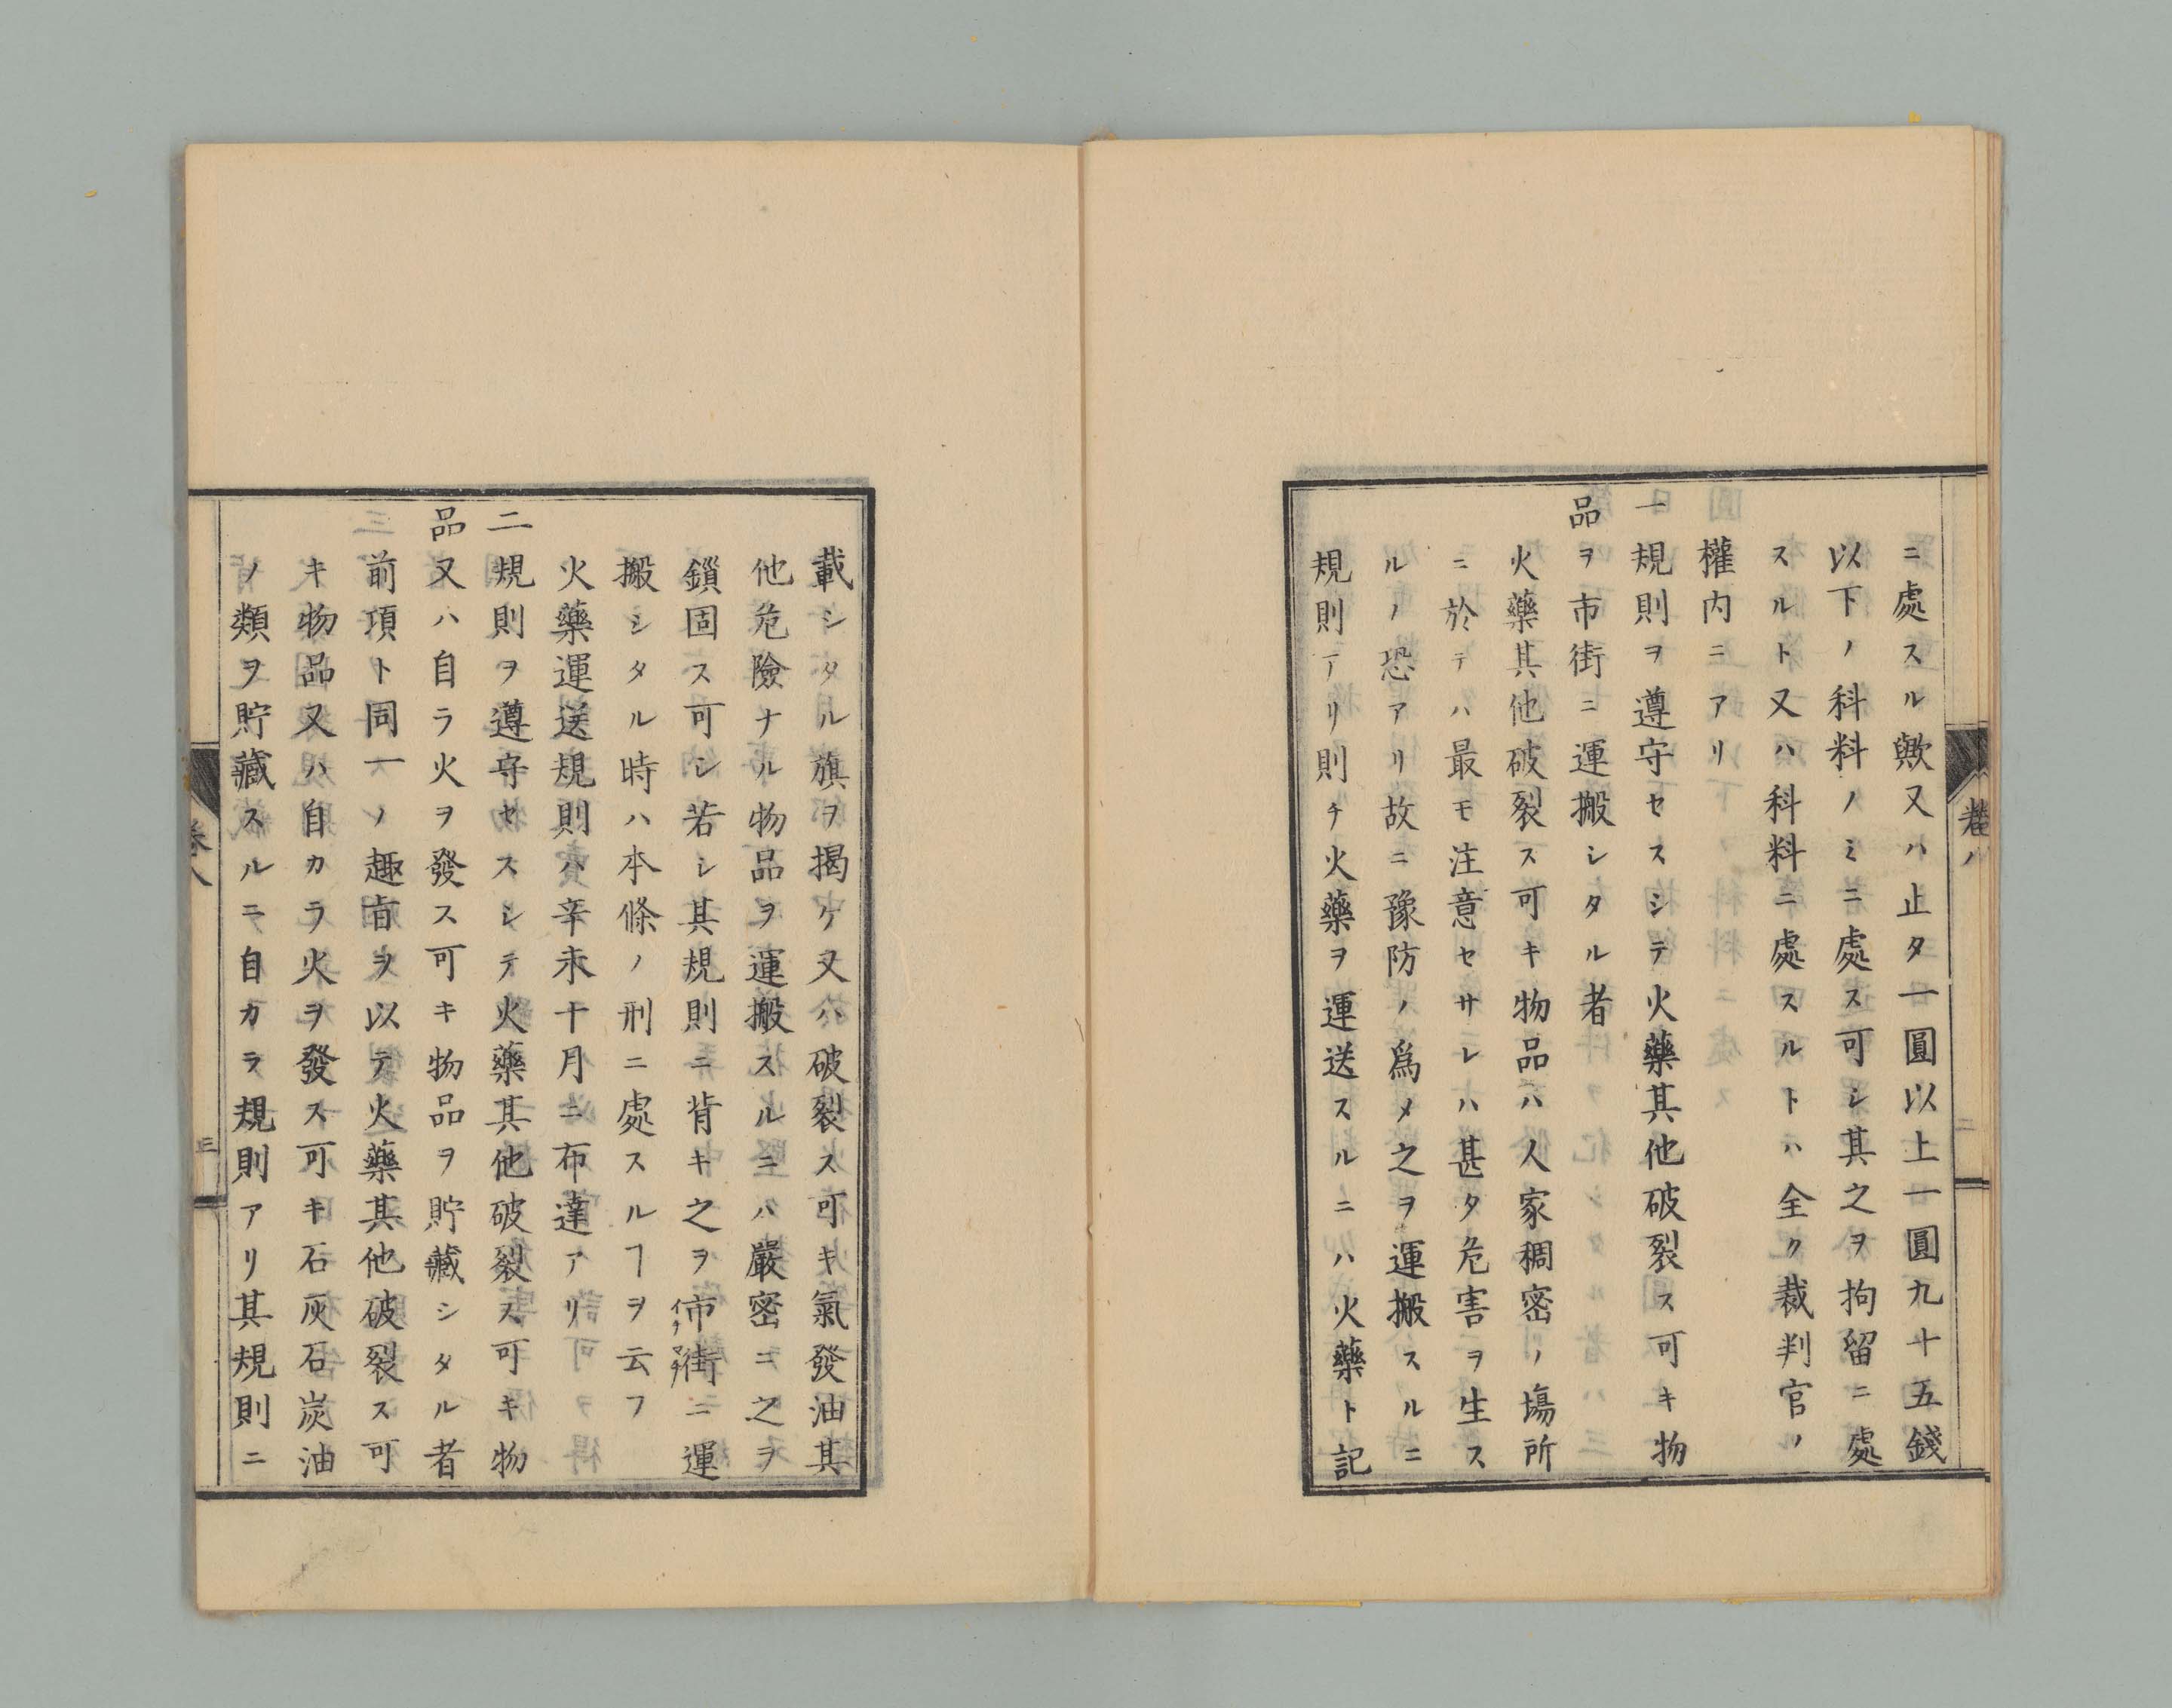 ニ處スル歟又ハ止タ一圓以上一圓九十五錢
以下ノ科料ノミニ處ス可シ其之ヲ拘留ニ處
スルト又ハ科料ニ處スルトハ全ク裁判官ノ
權内ニアリ
一規則ヲ遵守セスシテ火藥其他破裂ス可キ物
品ヲ市街ニ運搬シタル者
火藥其他破裂ス可キ物品ハ人家稠密ノ塲所
ニ於テハ最モ注意セサレハ甚タ危害ヲ生ス
ルノ恐アリ故ニ豫防ノ爲メ之ヲ運搬スルニ
規則アリ則チ火藥ヲ運送スルニハ火藥ト記
載シタル旗ヲ揭ケ又ハ破裂ス可キ氣發油其
他危險ナル物品ヲ運搬スルニハ嚴密ニ之ヲ
鎖固ス可シ若シ其規則ニ背キ之ヲ市街ニ運
搬シタル時ハ本條ノ刑ニ處スルヿヲ云フ
火藥運送規則ハ辛未十月ニ布達アリ
二規則ヲ遵守セスシテ火藥其他破裂ス可キ物
品又ハ自ラ火ヲ發ス可キ物品ヲ貯藏シタル者
前項ト同一ノ趣旨ヲ以テ火藥其他破裂ス可
キ物品又ハ自カラ火ヲ發ス可キ石灰石炭油
ノ類ヲ貯藏スルニ自カラ規則アリ其規則ニ
卷八
三
卷八
二